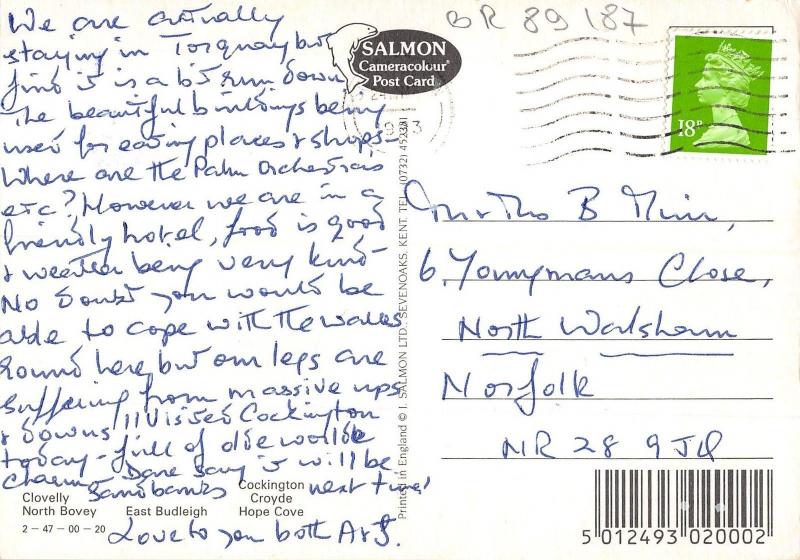 We are actually
staying in Torquay but
find it is a bit run down
The beautiful buildings being
used for eating places & shops -
Where are the Palm Orchestrais
etc? However we are in a
friendly hotel, food is good
& weather being very kind -
No doubt you would be
able to cope with the walks
round here, but our legs are
suffering from massive ups
& downs!! Visited Cockington
today - full of olde worlde
charm. Dare say it will be
Sandbanks next time!
Love to you both A & J.
Clovelly
North Bovey
East Budleigh
Cockington
Croyde
Hope Cove
2-47-00-20
SALMON
Cameracolour
Post Card
Printed in England © J. SALMON LTD., SEVENOAKS, KENT. TEL. (0732) 452381
BR 89187
18P
Mr & Mrs B Muir,
6, Youngmans Close,
North Walsham
Norfolk
NR 28 9JQ
5 012493 020002